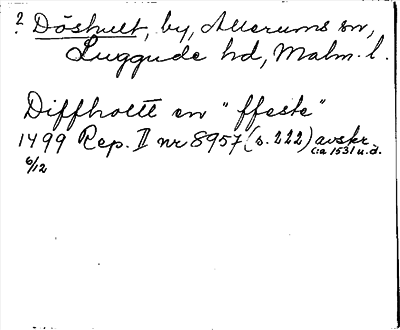 ? Döshult, by, Allerums sn,
Luggude hd, Malm. l.
Diffholtt en "ffeste"
1499 Rep. II nr 8957 (s. 222) avskr.
c:a 1531 u.d.
6/12